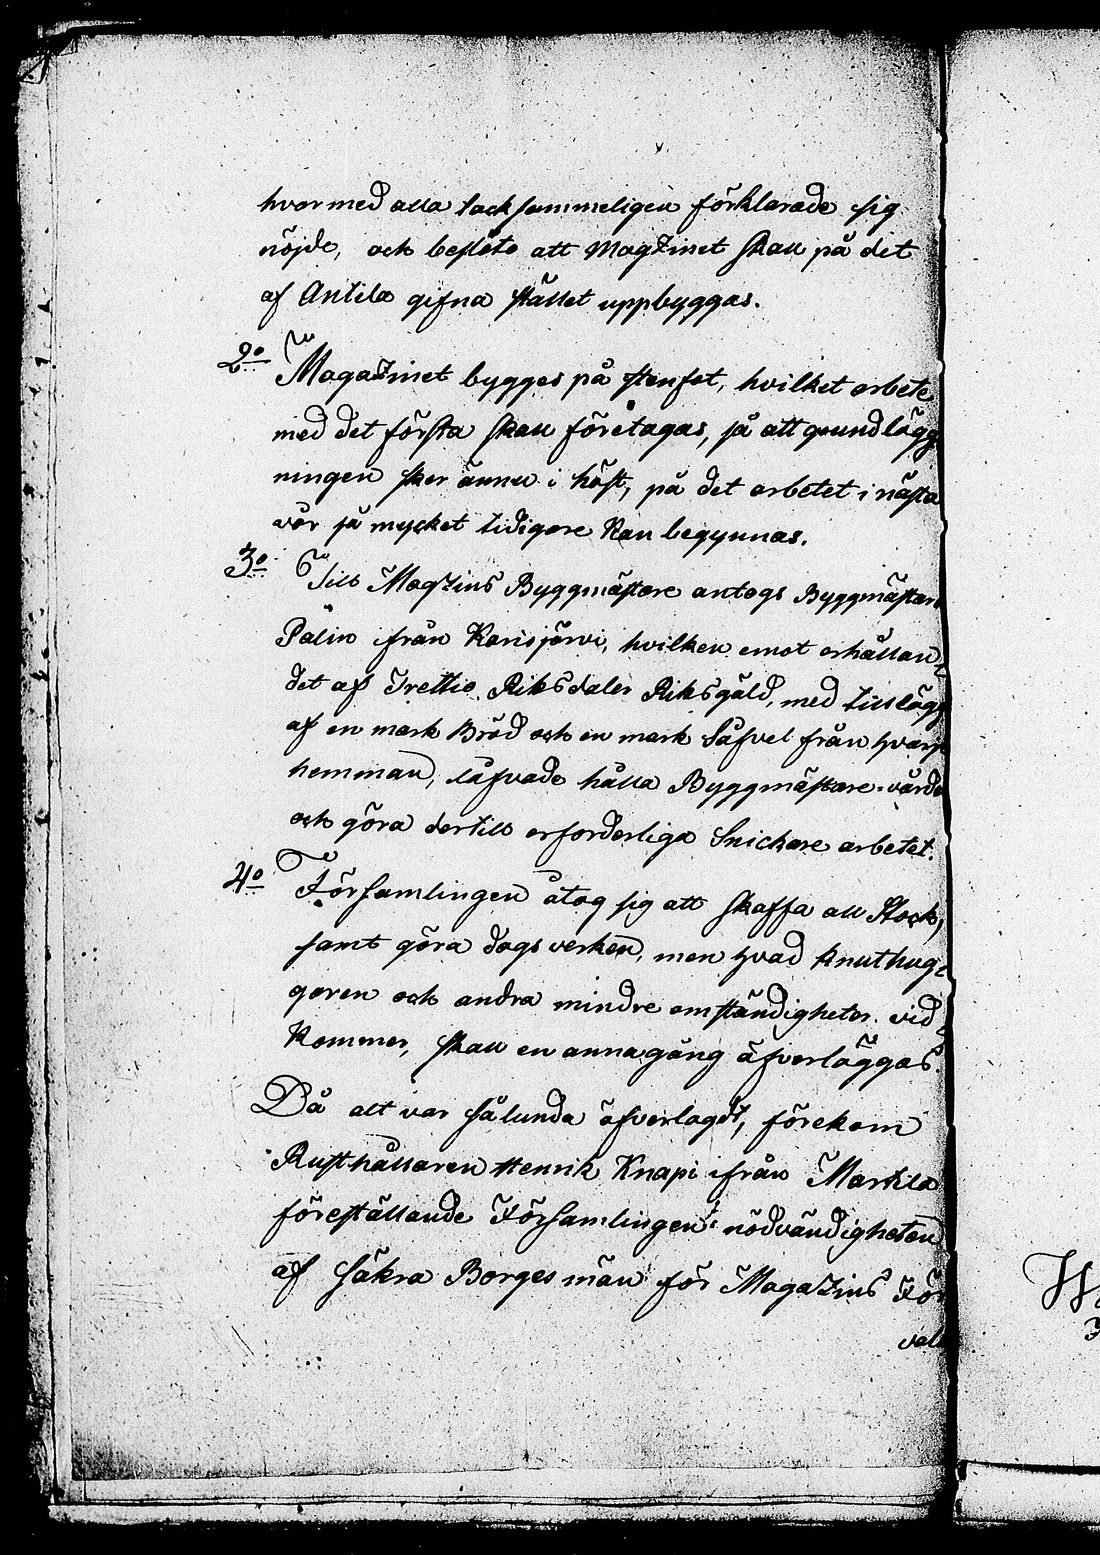 hvarmed alla tacksammeligen förklarade sig
nöjde, och beslöto att Magzinet skall på det
af Anttila gifna stället uppbyggas.
2o Magazinet bygges på stenfot, hvilket arbete
med det första skall företagas, så att grundlägg
ningen sker ännu i höst, på det arbetet i nästa
vår så mycket tidigare kan begynnas.
3o Till Magzins Byggmästare antogs Byggmästare
Palin från Karisjärvi, hvilken emot erhållan-
det af Trettio Riksdaler Riksgäld, med tillägg
af en mark Bröd och en mark Såfvel från hvarje
hemman, låfvade hålla Byggmästare-vårde
och göra dertill erforderliga Snickare arbetet.
4o Församlingen åtog sig att skaffa all Stock,
samt göra dagsverken, men hvad knuthug-
garen och andra mindre omständigheter vid-
kommer, skall en annagång äfverläggas.
Då alt var sålunda öfverlagdt, förekom
Rusthållaren Henrik Knapi ifrån Marttila
föreställande Församlingen nödvändigheten
af säkra Borgesmän för Magazins För
valt